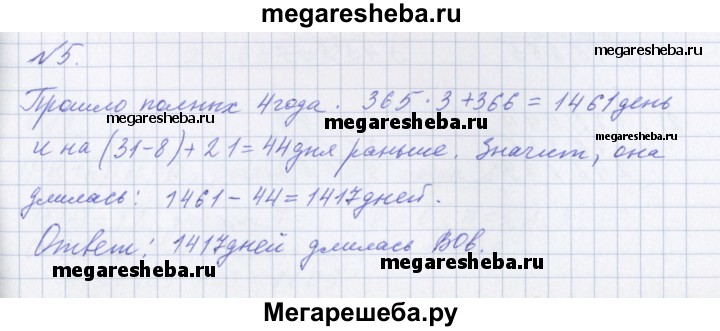 megaresheba.ru
№5.
megaresheba.ru
Прошло полных 4 года. 365·3+366=1461 день
megaresheba.ru
megaresheba.ru
и на (31-8)+21=44 дня раньше. Значит, она
длилась: 1461-44=1417 дней.
Ответ: 1417 дней длилась ВОв.
megaresheba.ru
megaresheba.ru
Мегарешеба.ру